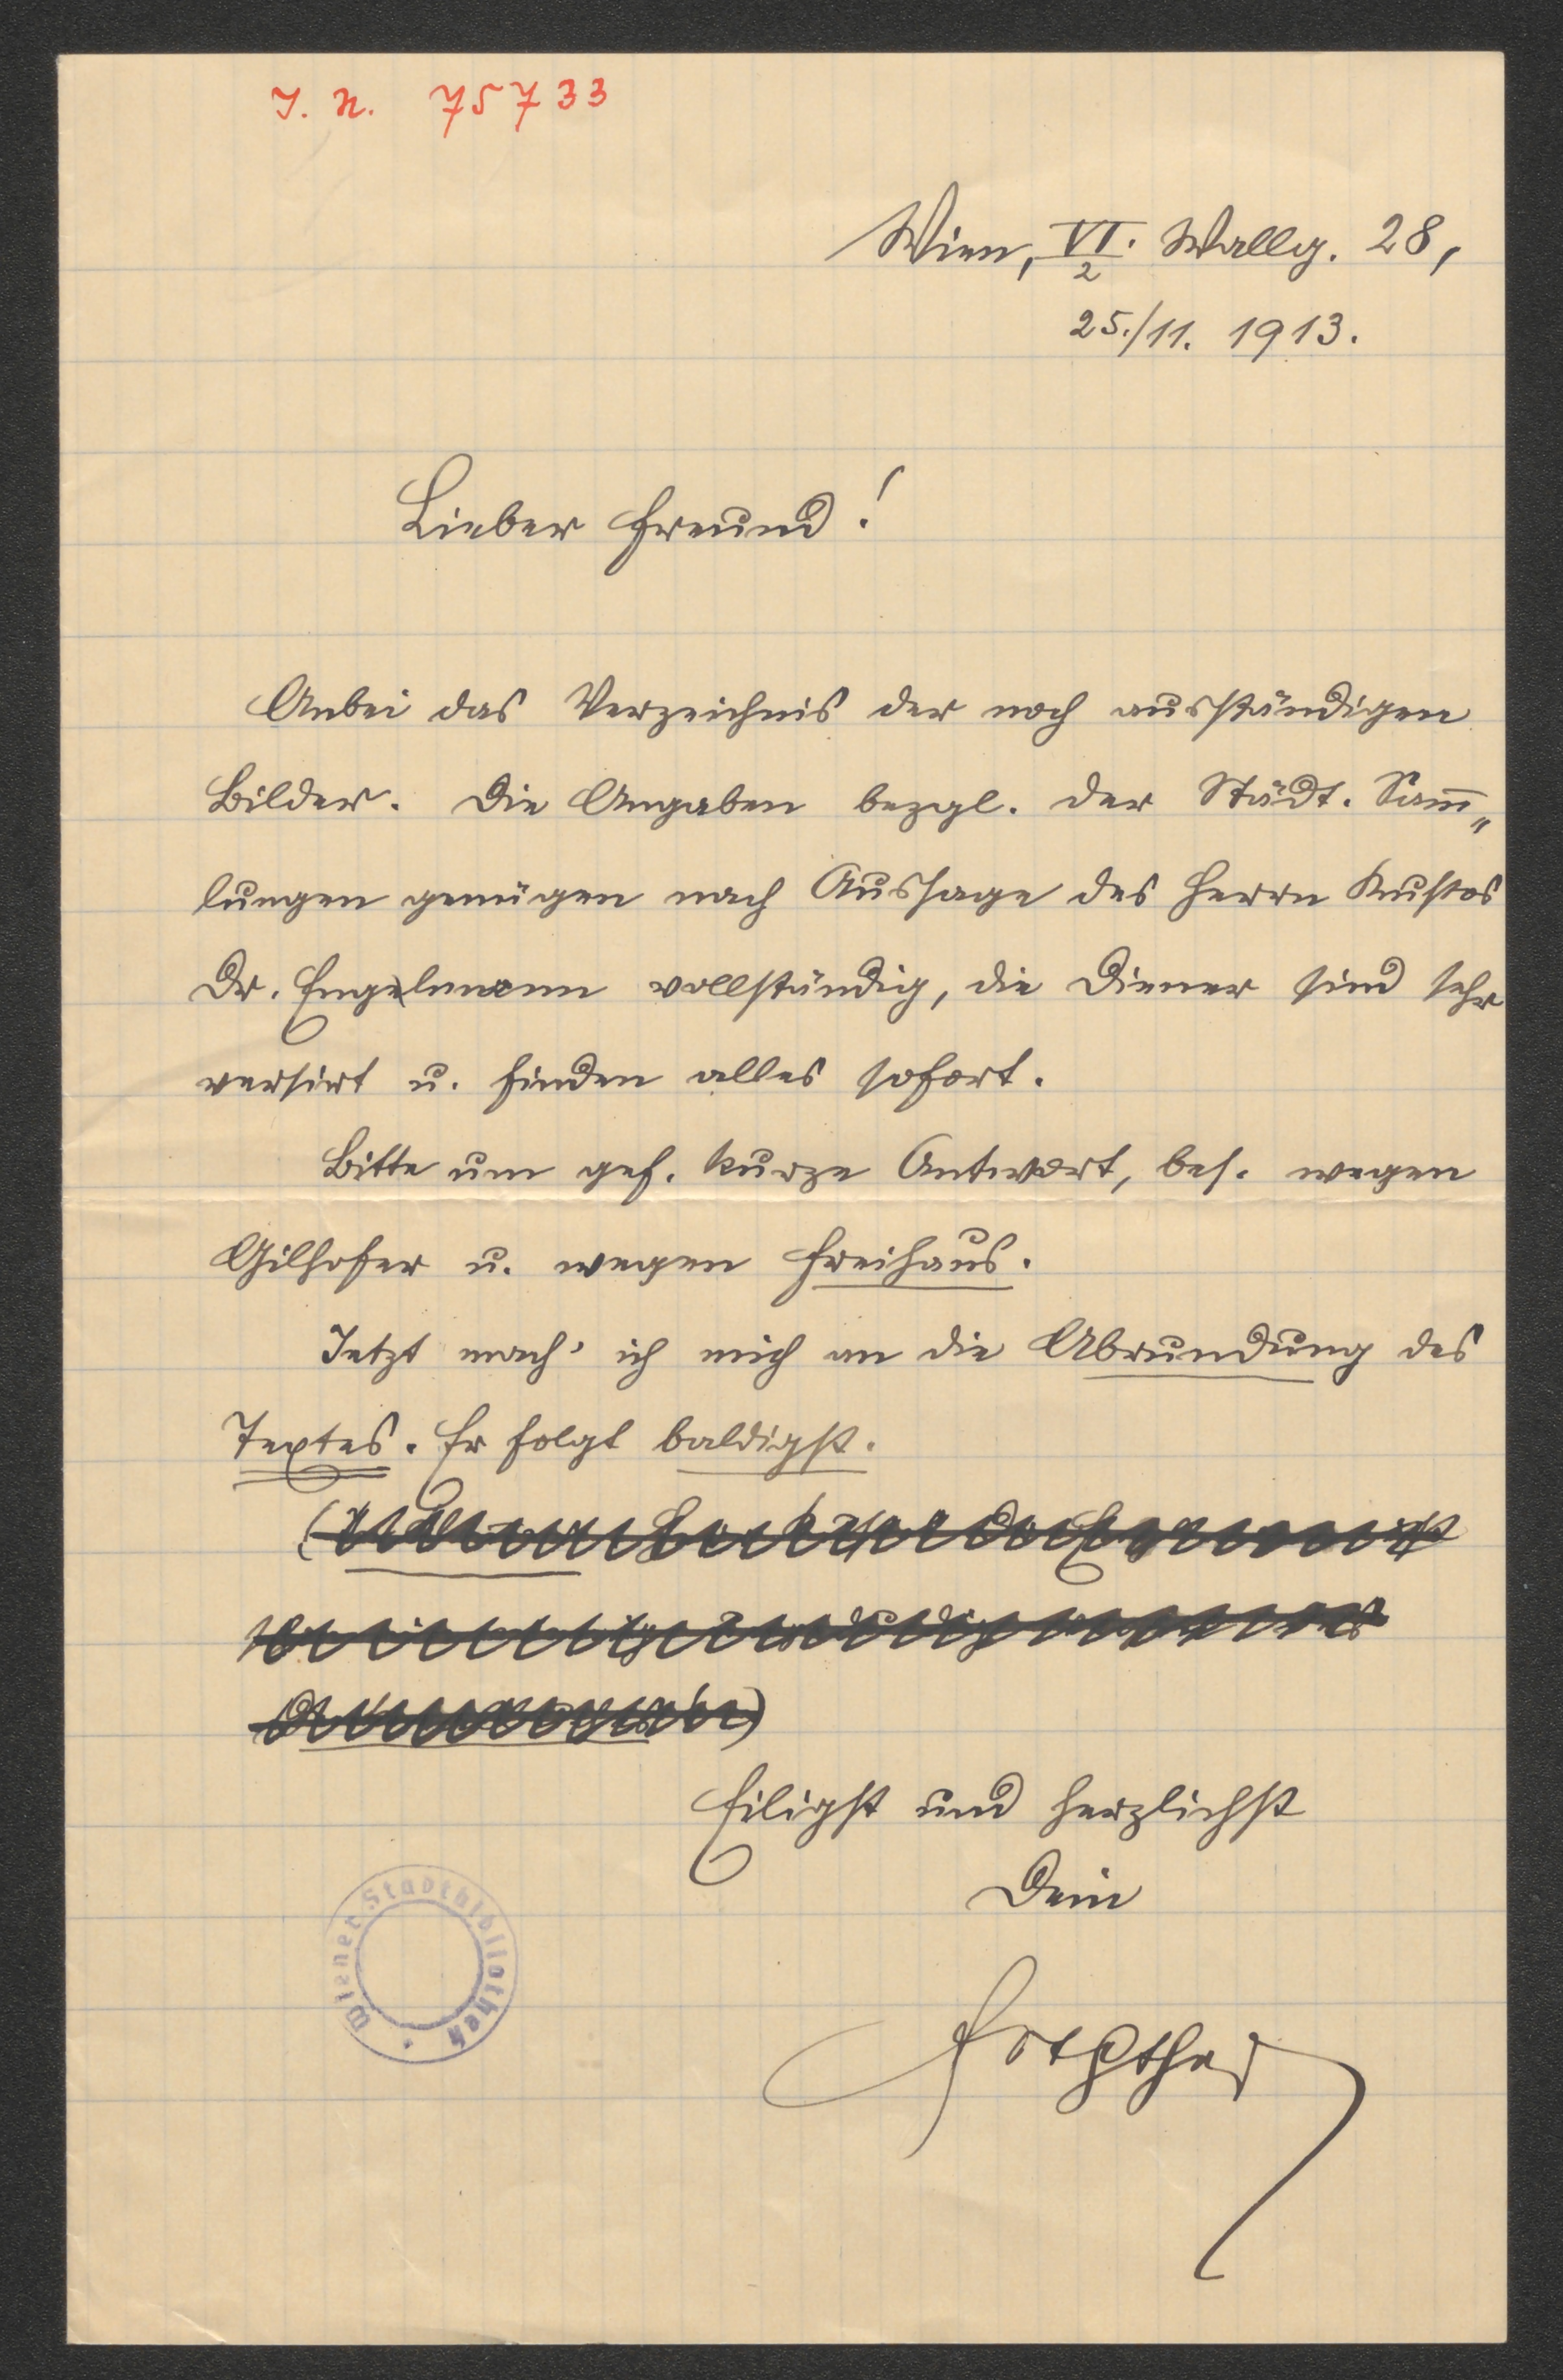 I. N. 75733
Wien, VI./2 Wallg. 28,
25./11. 1913.
Lieber Freund!
Anbei das Verzeichnis der noch ausständigen
Bilder. Die Angaben bezgl. der Städt. Sam̅„
lungen genügen nach Aussage des Herrn Kustos
Dr. Engelmann vollständig, die Diener sind sehr
versirt u. finden alles sofort.
Bitte um gef. kurze Antwort, bes. wegen
Gilhofer u. wegen Freihaus.
Jetzt mach' ich mich an die Abrundung des
Textes. Er folgt baldigst.
Eiligst und herzlichst
Dein
Wiener Stadtbibliothek